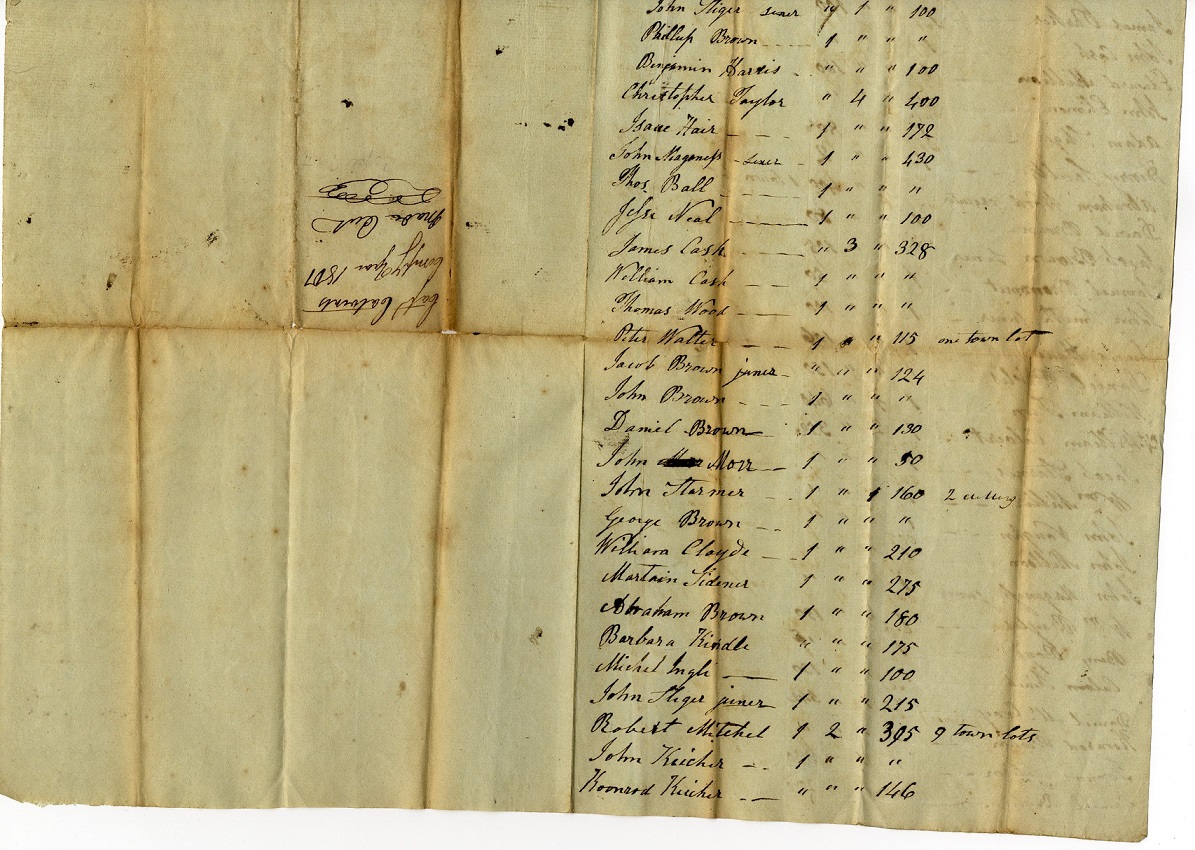 John Stiger sener " 1 " 100
Phillip Brown — 1 " " "
Benjamin Harris - " " " 100
Christopher Taylor " 4 " 400
Isaac Hair — 1 " " 172
John Maganess - sener - 1 " " 430
Thos. Ball — 1 " " "
Jesse Neal — 1 " " 100
James Cash — " 3 " 328
William Cash — 1 " " "
Thomas Wood — 1 " " "
Peter Walter — 1 " " 115 one town lot
Jacob Brown juner - " " " 124
John Brown — 1 " " "
Daniel Brown — 1 " " 130
John Morr — 1 " " 50
John Starmer - 1 " 1 160 2
George Brown — 1 " " "
William Clayde — 1 " " 210
Martain Sidener 1 " " 275
Abraham Brown 1 " " 180
Barbara Kindle " " " 175
Michel Ingle — 1 " " 100
John Stiger juner 1 " " 215
Robert Mitchel 1 2 " 395 9 town lots
John Keicher — 1 " " "
Koonrod Keicher — " " " 146
Capt Calverts
Comp Year 1807